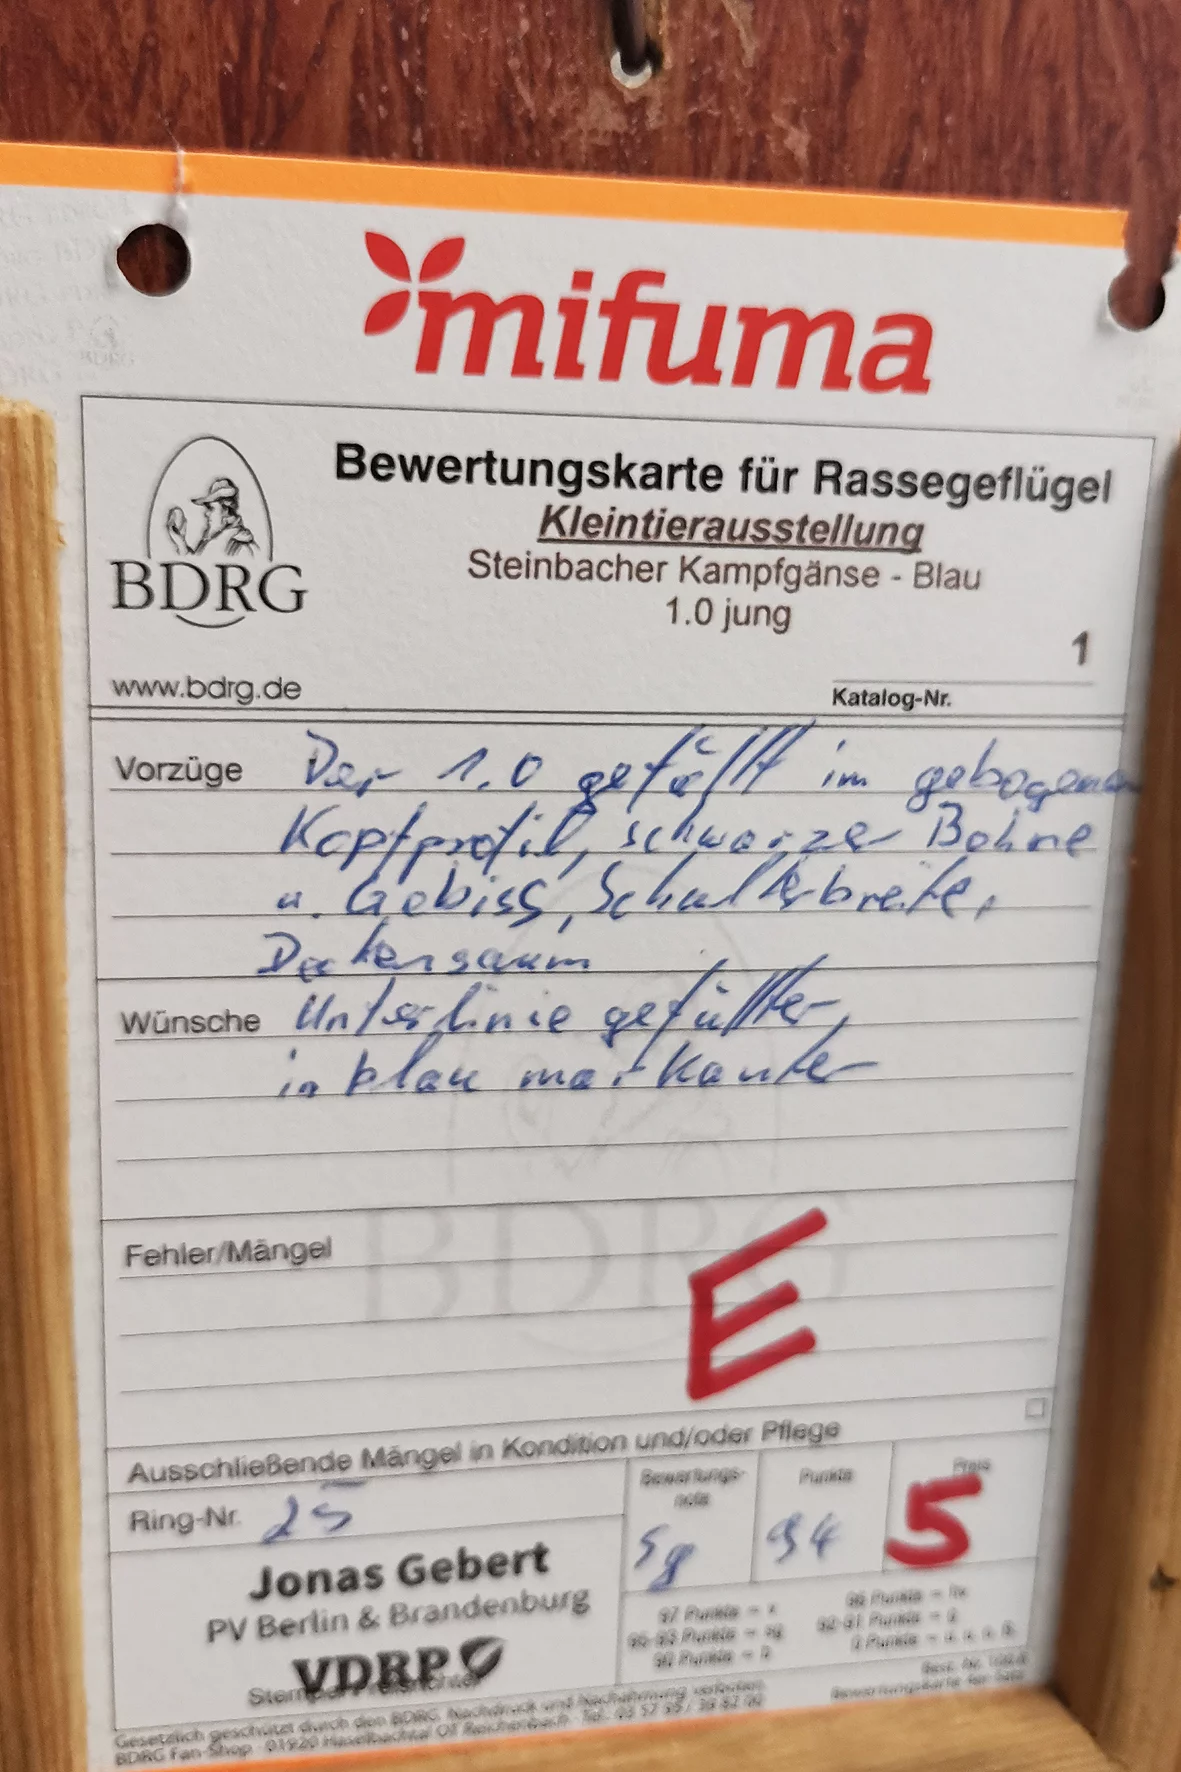 mifuma
Bewertungskarte für Rassegeflügel
Kleintierausstellung
Steinbacher Kampfgänse - Blau
1.0 jung
BDRG
1
www.bdrg.de
Katalog-Nr.
Vorzüge Der 1.0 gefällt im gebogenen
Kopfprofil, schwarzer Bohne
u. Gebiss, Schulterbreite,
Deckensaum
Wünsche Unterlinie gefüllter,
in blau markanter
BDRG
Fehler/Mängel
E
Ausschließende Mängel in Kondition und/oder Pflege
Ring-Nr. 25
Bewertungs-
note
Punkte
Preis
sg 94 5
Jonas Gebert
PV Berlin & Brandenburg
VDRP
97 Punkte = v
96 Punkte = hv
95-93 Punkte = sg
92-91 Punkte = g
90 Punkte = b
0 Punkte = u, o, n, B.
Gesetzlich geschützt durch den BDRG. Nachdruck und Nachahmung verboten
BDRG Fan-Shop · 01920 Haselbachtal OT Reichenbach · Tel.